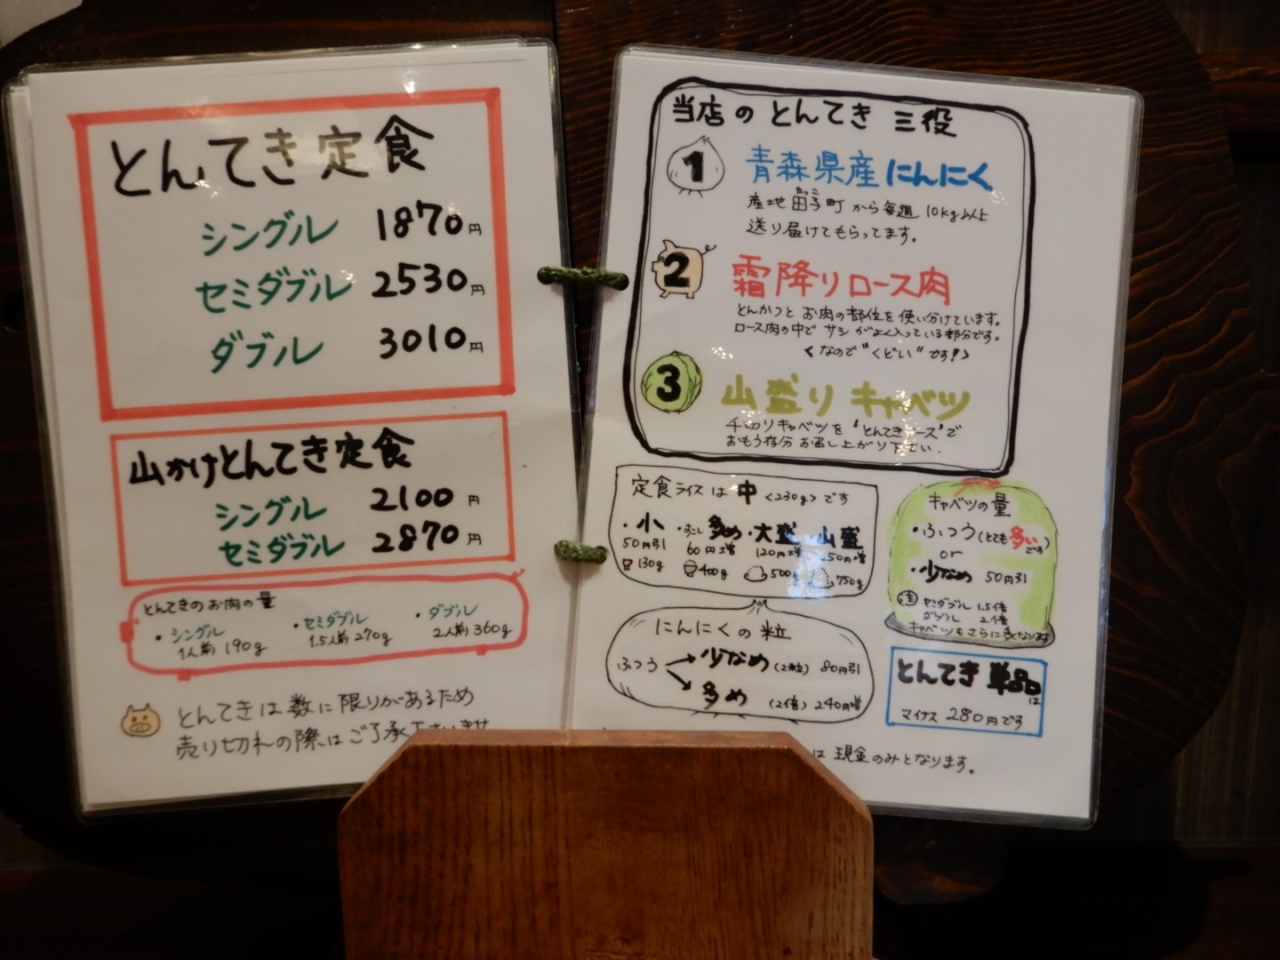 とんてき定食
シングル 1870円
セミダブル 2530円
ダブル 3010円
山かけとんてき定食
シングル 2100円
セミダブル 2870円
とんてきのお肉の量
・シングル 1人前 190g
・セミダブル 1.5人前 270g
・ダブル 2人前 360g
とんてきは数に限りがあるため
売り切れの際はご了承下さいませ
当店のとんてき三役
1 青森県産にんにく
産地田子町から毎週10kg以上
たっこ
送り届けてもらってます。
2 霜降りロース肉
とんかつとお肉の部位を使い分けています。
ロース肉の中でサシがよく入っている部分です。
くなので"くどい"です!>
3 山盛りキャベツ
千切りキャベツを'とんてきソース'で
おもう存分お召し上がり下さい.
定食ライスは中<230g>です
・小 50円引 130g
・すこし多め 60円増 400g
・大盛 120円増 500g
山盛 250円増 750g
キャベツの量
・ふつう(とても多いです)
or
・少なめ 50円引
注 セミダブル 1.5倍
ダブル 2倍
キャベツもさらに多くなります
にんにくの粒
ふつう → 少なめ(2粒) 80円引
→ 多め (2倍) 240円増
とんてき単品は
マイナス280円です
は現金のみとなります。